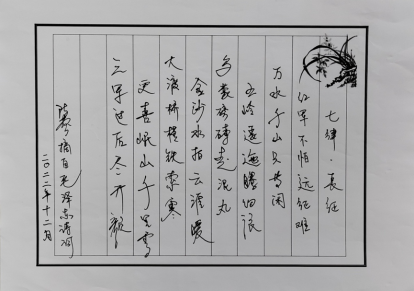 七律·长征
红军不怕远征难
万水千山只等闲
五岭逶迤腾细浪
乌蒙磅礴走泥丸
金沙水拍云涯暖
大渡桥横铁索寒
更喜岷山千里雪
三军过后尽开颜
摘自毛泽东诗词
二〇二二年十二月